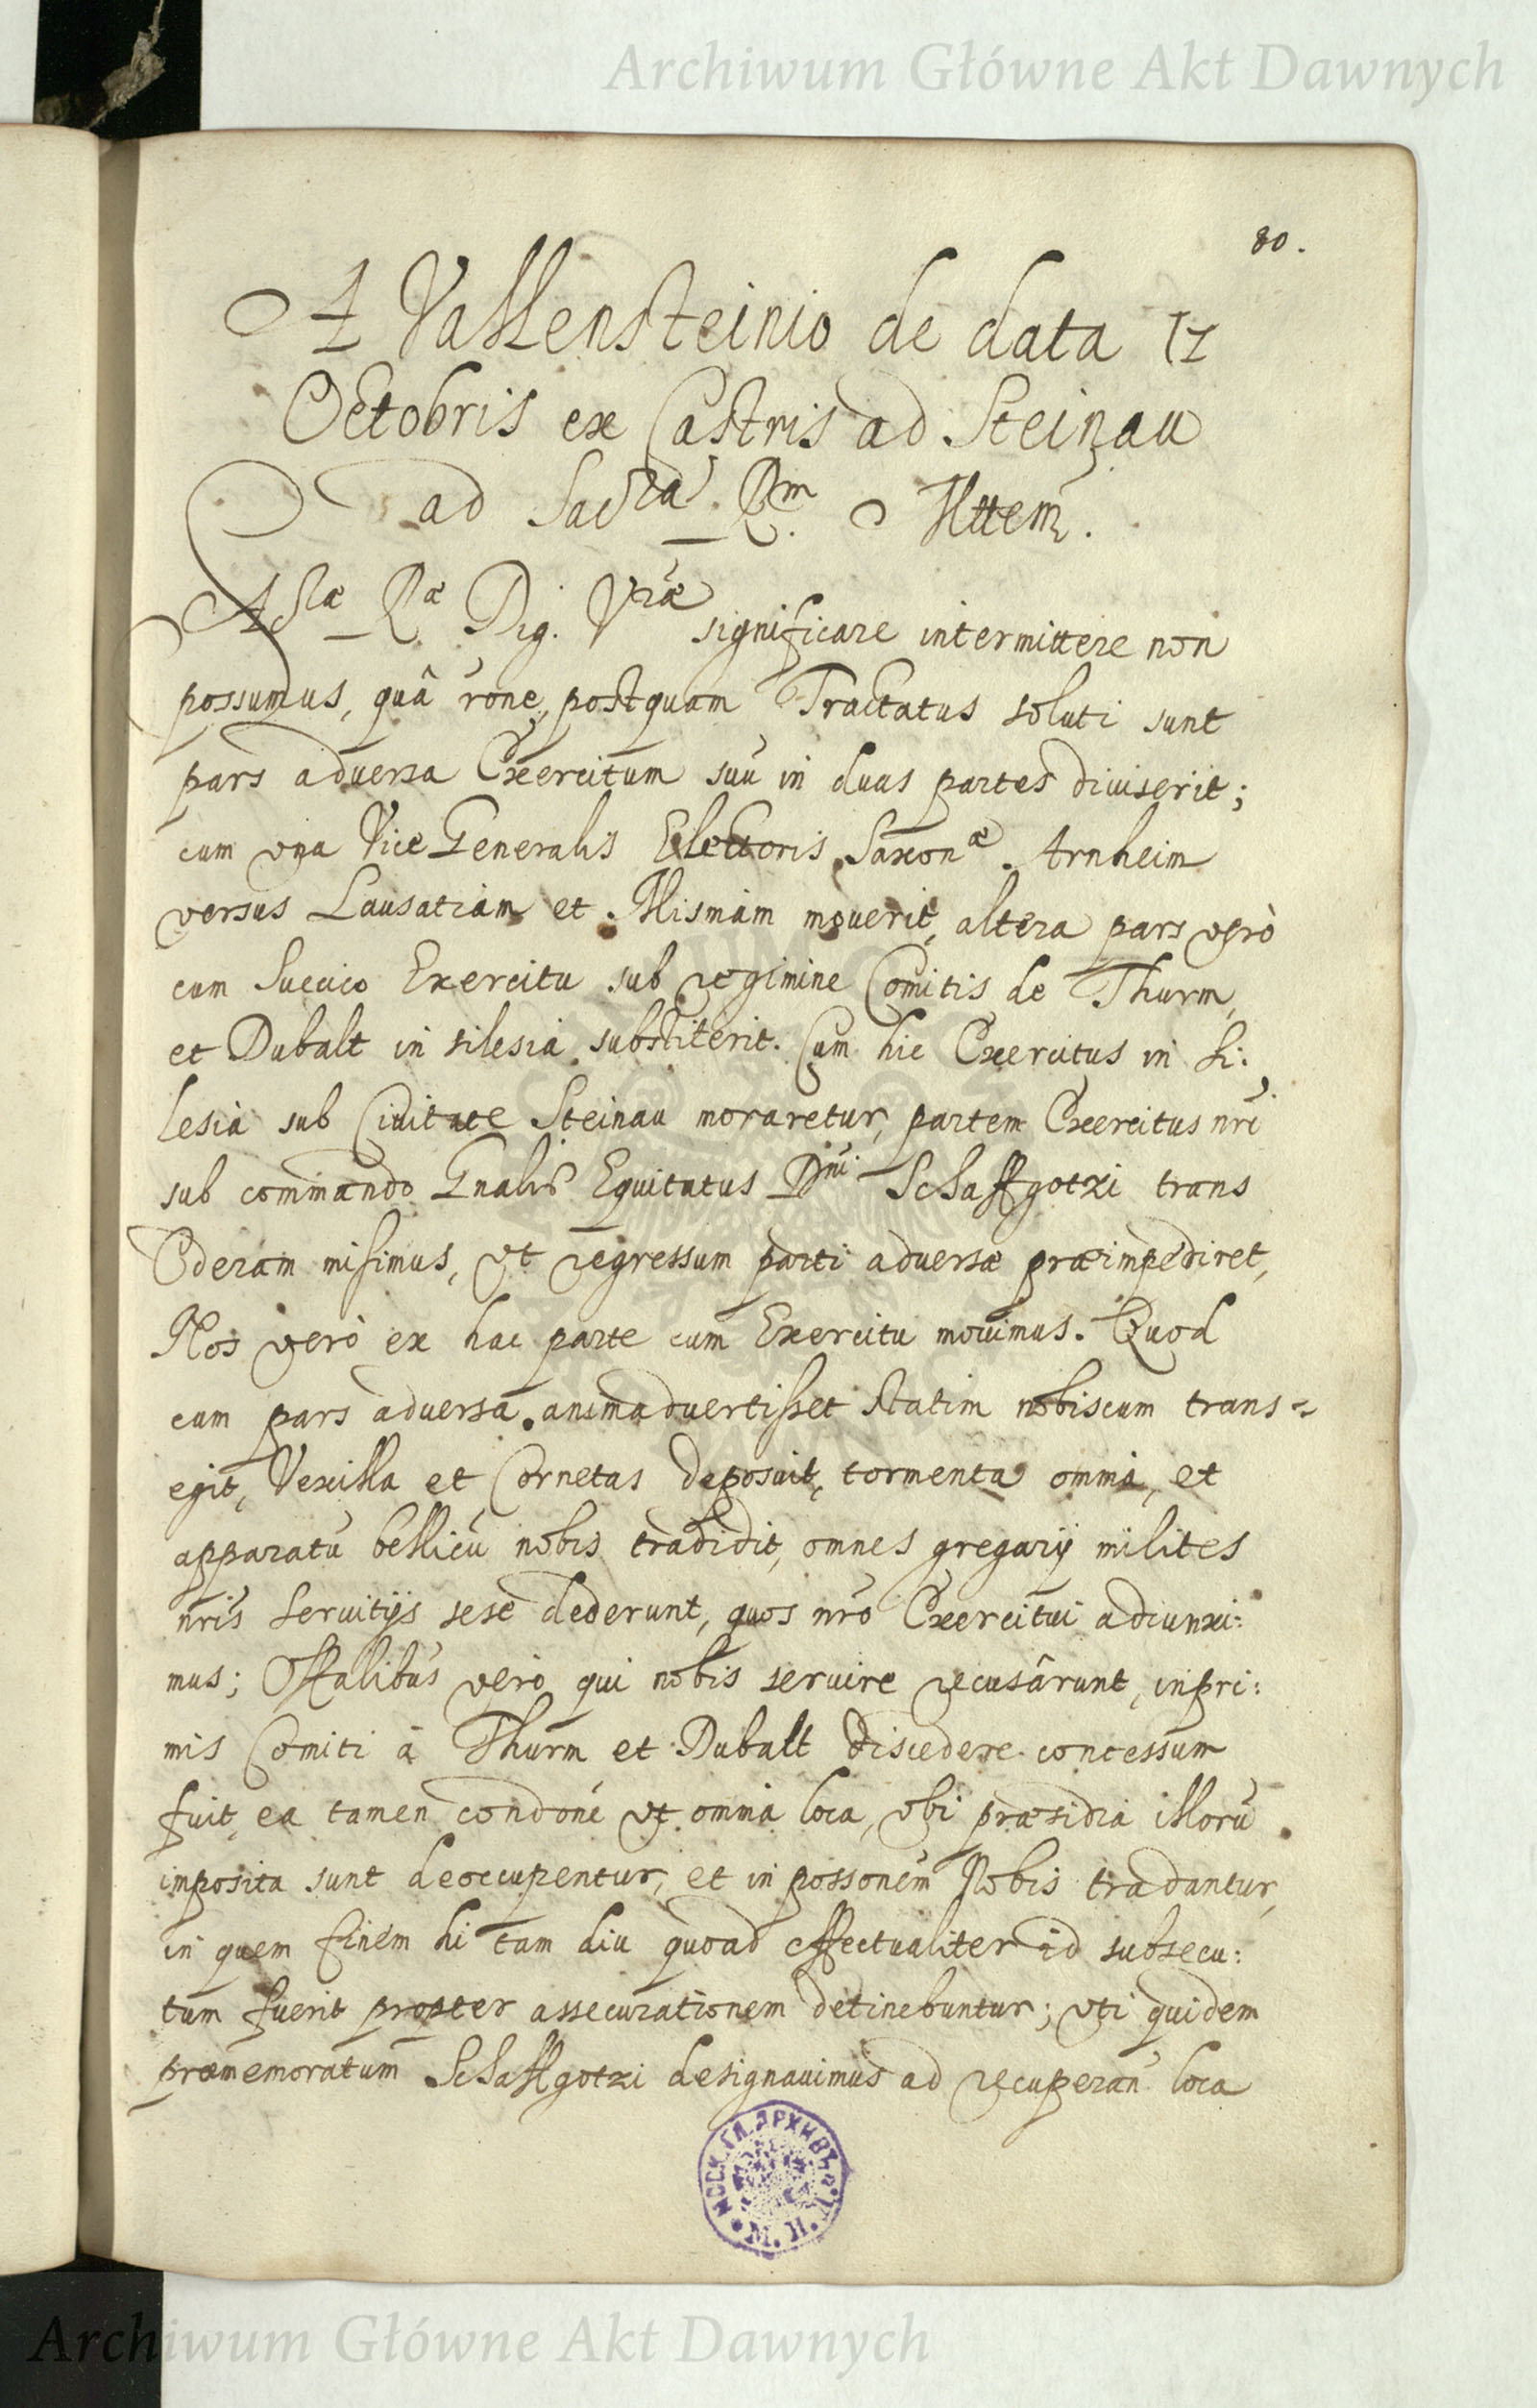 Archiwum Główne Akt Dawnych
80.
A Vallensteinio de data 17
Octobris ex Castris ad Steinau
ad Sacra R.m Mttem.
Scæ R.æ Dig. Vræ significare intermittere non
possumus, quâ rone, postquam Tractatus soluti sunt
pars adversa Exercitum suũ in duas partes diviserit;
cum vna Vice Generalis Electoris Saxonæ. Arnheim
versus Lausatiam et Misniam moverit, altera pars verò
cum Suecico Exercitu sub regimine Comitis de Thurm,
et Dubalt in silesia substiterit. Cum hic Exercitus in Si:
lesia sub Civitate Steinau moraretur, partem Exercitus nri
sub commando Gnalis Equitatus Dni Schaffgotzi trans
Oderam misimus, vt regressum parti adversæ præimpediret,
Nos verò ex hac parte cum Exercitu movimus. Quod
cum pars adversa animadvertisset statim nobiscum trans=
egit, Vexilla et Cornetas deposuit, tormenta omnia, et
apparatũ bellicũ nobis tradidit, omnes gregarij milites
nris servitijs sese dederunt, quos nro Exercitui adiunxi:
mus; Offalibus verò qui nobis servire recusârunt, inpri:
mis Comiti à Thurm et Dubalt discedere concessum
fuit, ea tamen condone vt omnia loca, vbi præsidia illorũ
imposita sunt deoccupentur, et in possonem Nobis tradantur,
in quem finem hi tam diu quoad effectualiter id subsecu:
tum fuerit propter assecurationem detinebuntur; vti quidem
præmemoratum Schaffgotzi designavimus ad recuperan loca
МОСК. ГЛ. АРХИВЪ
М. И. Д.
Archiwum Główne Akt Dawnych